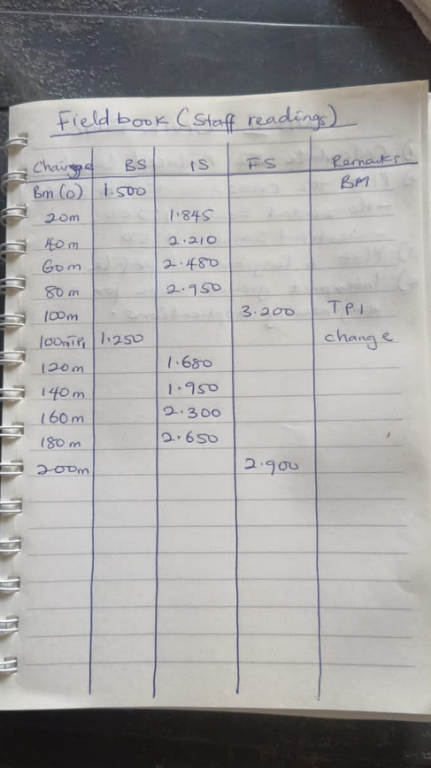 Fieldbook (Staff readings)
Chainage BS IS FS Remarks
Bm (0) 1.500 BM
20m 1.845
40m 2.210
60m 2.480
80m 2.950
100m 3.200 TP1
100mTP1 1.250 change
120m 1.680
140m 1.950
160m 2.300
180m 2.650
200m 2.900